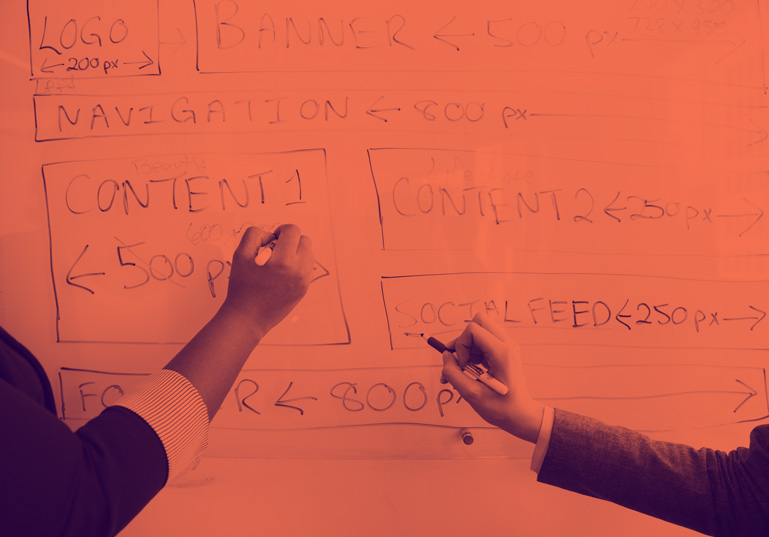 LOGO
← 200 px →
BANNER ← 500 px
728 X
NAVIGATION ← 800 px
CONTENT 1
← 500 p
CONTENT 2 ← 250 px →
SOCIAL FEED ← 250 px →
FO R ← 800 p →